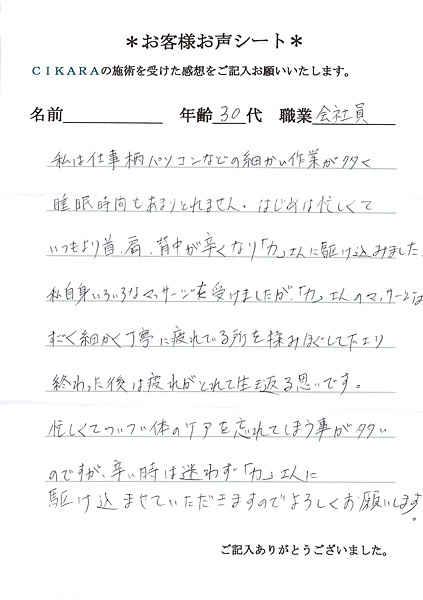 ＊お客様お声シート＊
ＣＩＫＡＲＡの施術を受けた感想をご記入お願いいたします。
名前　　　　　　年齢 30 代　職業 会社員
私は仕事柄パソコンなどの細かい作業が多く
睡眠時間もあまりとれません。はじめは忙しくて
いつもより首、肩、背中が辛くなり「力」さんに駆け込みました。
私自身いろいろなマッサージを受けましたが、「力」さんのマッサージは
すごく細かく丁寧に疲れている所を揉みほぐして下さり
終わった後は疲れがとれて生き返る思いです。
忙しくてついつい体のケアを忘れてしまう事が多い
のですが、辛い時は迷わず「力」さんに
駆け込ませていただきますのでよろしくお願いします。
ご記入ありがとうございました。